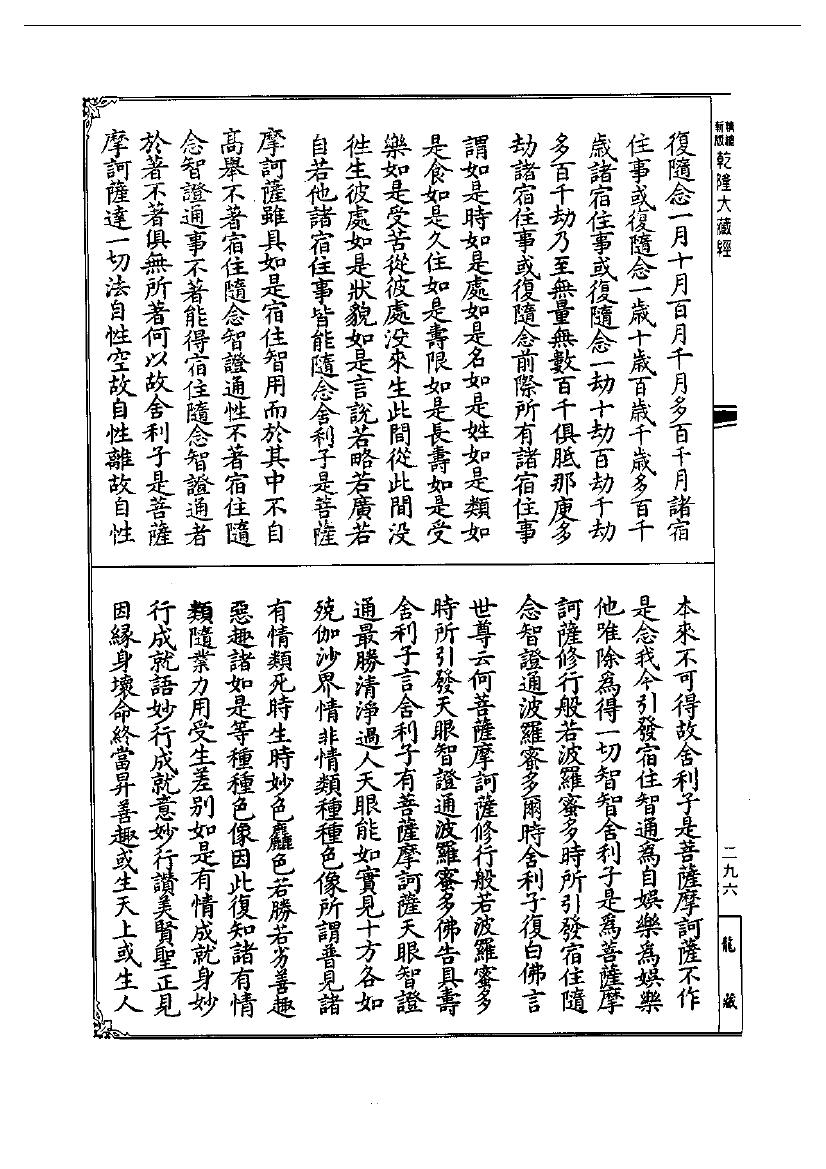 新版
橫遍
乾隆大藏經
復隨念一月十月百月千月多百千月諸宿
住事或復隨念一歲十歲百歲千歲多百千
歲諸宿住事或復隨念一劫十劫百劫千劫
多百千劫乃至無量無數百千俱胝那庾多
劫諸宿住事或復隨念前際所有諸宿住事
謂如是時如是處如是名如是姓如是類如
是食如是久住如是壽限如是長壽如是受
樂如是受苦從彼處没來生此間從此間没
徃生彼處如是狀貌如是言說若略若廣若
自若他諸宿住事皆能隨念舍利子是菩薩
摩訶薩雖具如是宿住智用而於其中不自
高舉不著宿住隨念智證通性不著宿住隨
念智證通事不著能得宿住隨念智證通者
於著不著俱無所著何以故舍利子是菩薩
摩訶薩達一切法自性空故自性離故自性
本來不可得故舍利子是菩薩摩訶薩不作
是念我今引發宿住智通為自娛樂為娛樂
他唯除為得一切智智舍利子是為菩薩摩
訶薩修行般若波羅蜜多時所引發宿住隨
念智證通波羅蜜多爾時舍利子復白佛言
世尊云何菩薩摩訶薩修行般若波羅蜜多
時所引發天眼智證通波羅蜜多佛告具壽
舍利子言舍利子有菩薩摩訶薩天眼智證
通最勝清淨過人天眼能如實見十方各如
殑伽沙界情非情類種種色像所謂普見諸
有情類死時生時妙色麤色若勝若劣善趣
惡趣諸如是等種種色像因此復知諸有情
類隨業力用受生差別如是有情成就身妙
行成就語妙行成就意妙行讚美賢聖正見
因緣身壞命終當昇善趣或生天上或生人
二九六
龍藏